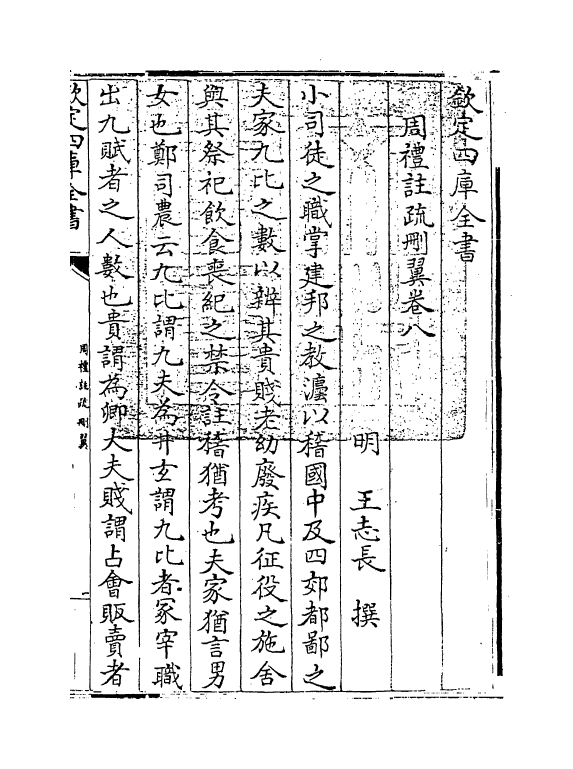 欽定四庫全書
周禮註疏刪翼卷八
明 王志長 撰
小司徒之職掌建邦之教灋以稽國中及四郊都鄙之
夫家九比之數以辨其貴賤老幼廢疾凡征役之施舍
與其祭祀飲食喪紀之禁令註稽猶考也夫家猶言男
女也鄭司農云九比謂九夫為井玄謂九比者冢宰職
出九賦者之人數也貴謂為卿大夫賤謂占會販賣者
欽定四庫全書
周禮註疏刪翼
一